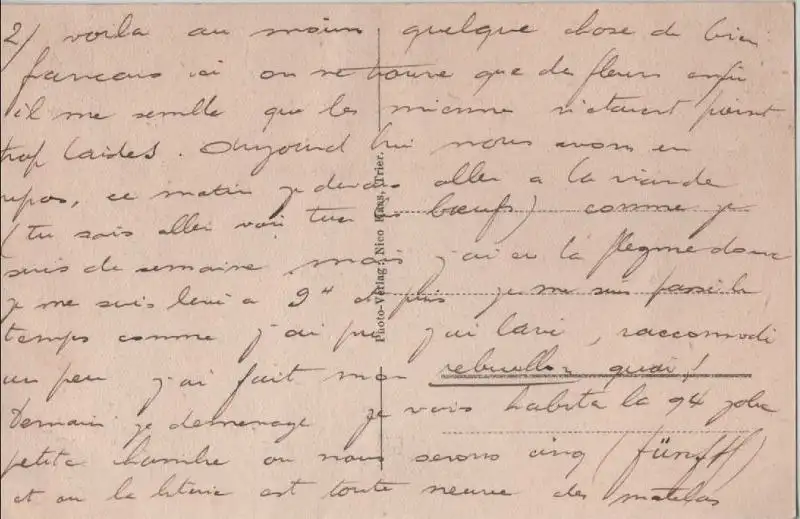 2/ voila au moins quelque chose de bien
francais ici on ne trouve que des fleurs enfin
il me semble que les miennes n'étaient point
trop laides. Aujourd'hui nous avons eu
repos, ce matin je devais aller a la viande
(tu sais aller voir tuer les bœufs) comme je
suis de semaine mais j'ai eu la flegme donc
je me suis levé a 9H et puis je me suis passé le
temps comme j'ai pu j'ai lavé, raccomodé
un peu j'ai fait mon quoi!
Demain je demenage je vais habiter la 94 jolie
petite chambre ou nous serons cinq (fünff)
et ou la literie est toute neuve des matelas
Photo-Verlag: Nico Haas, Trier.